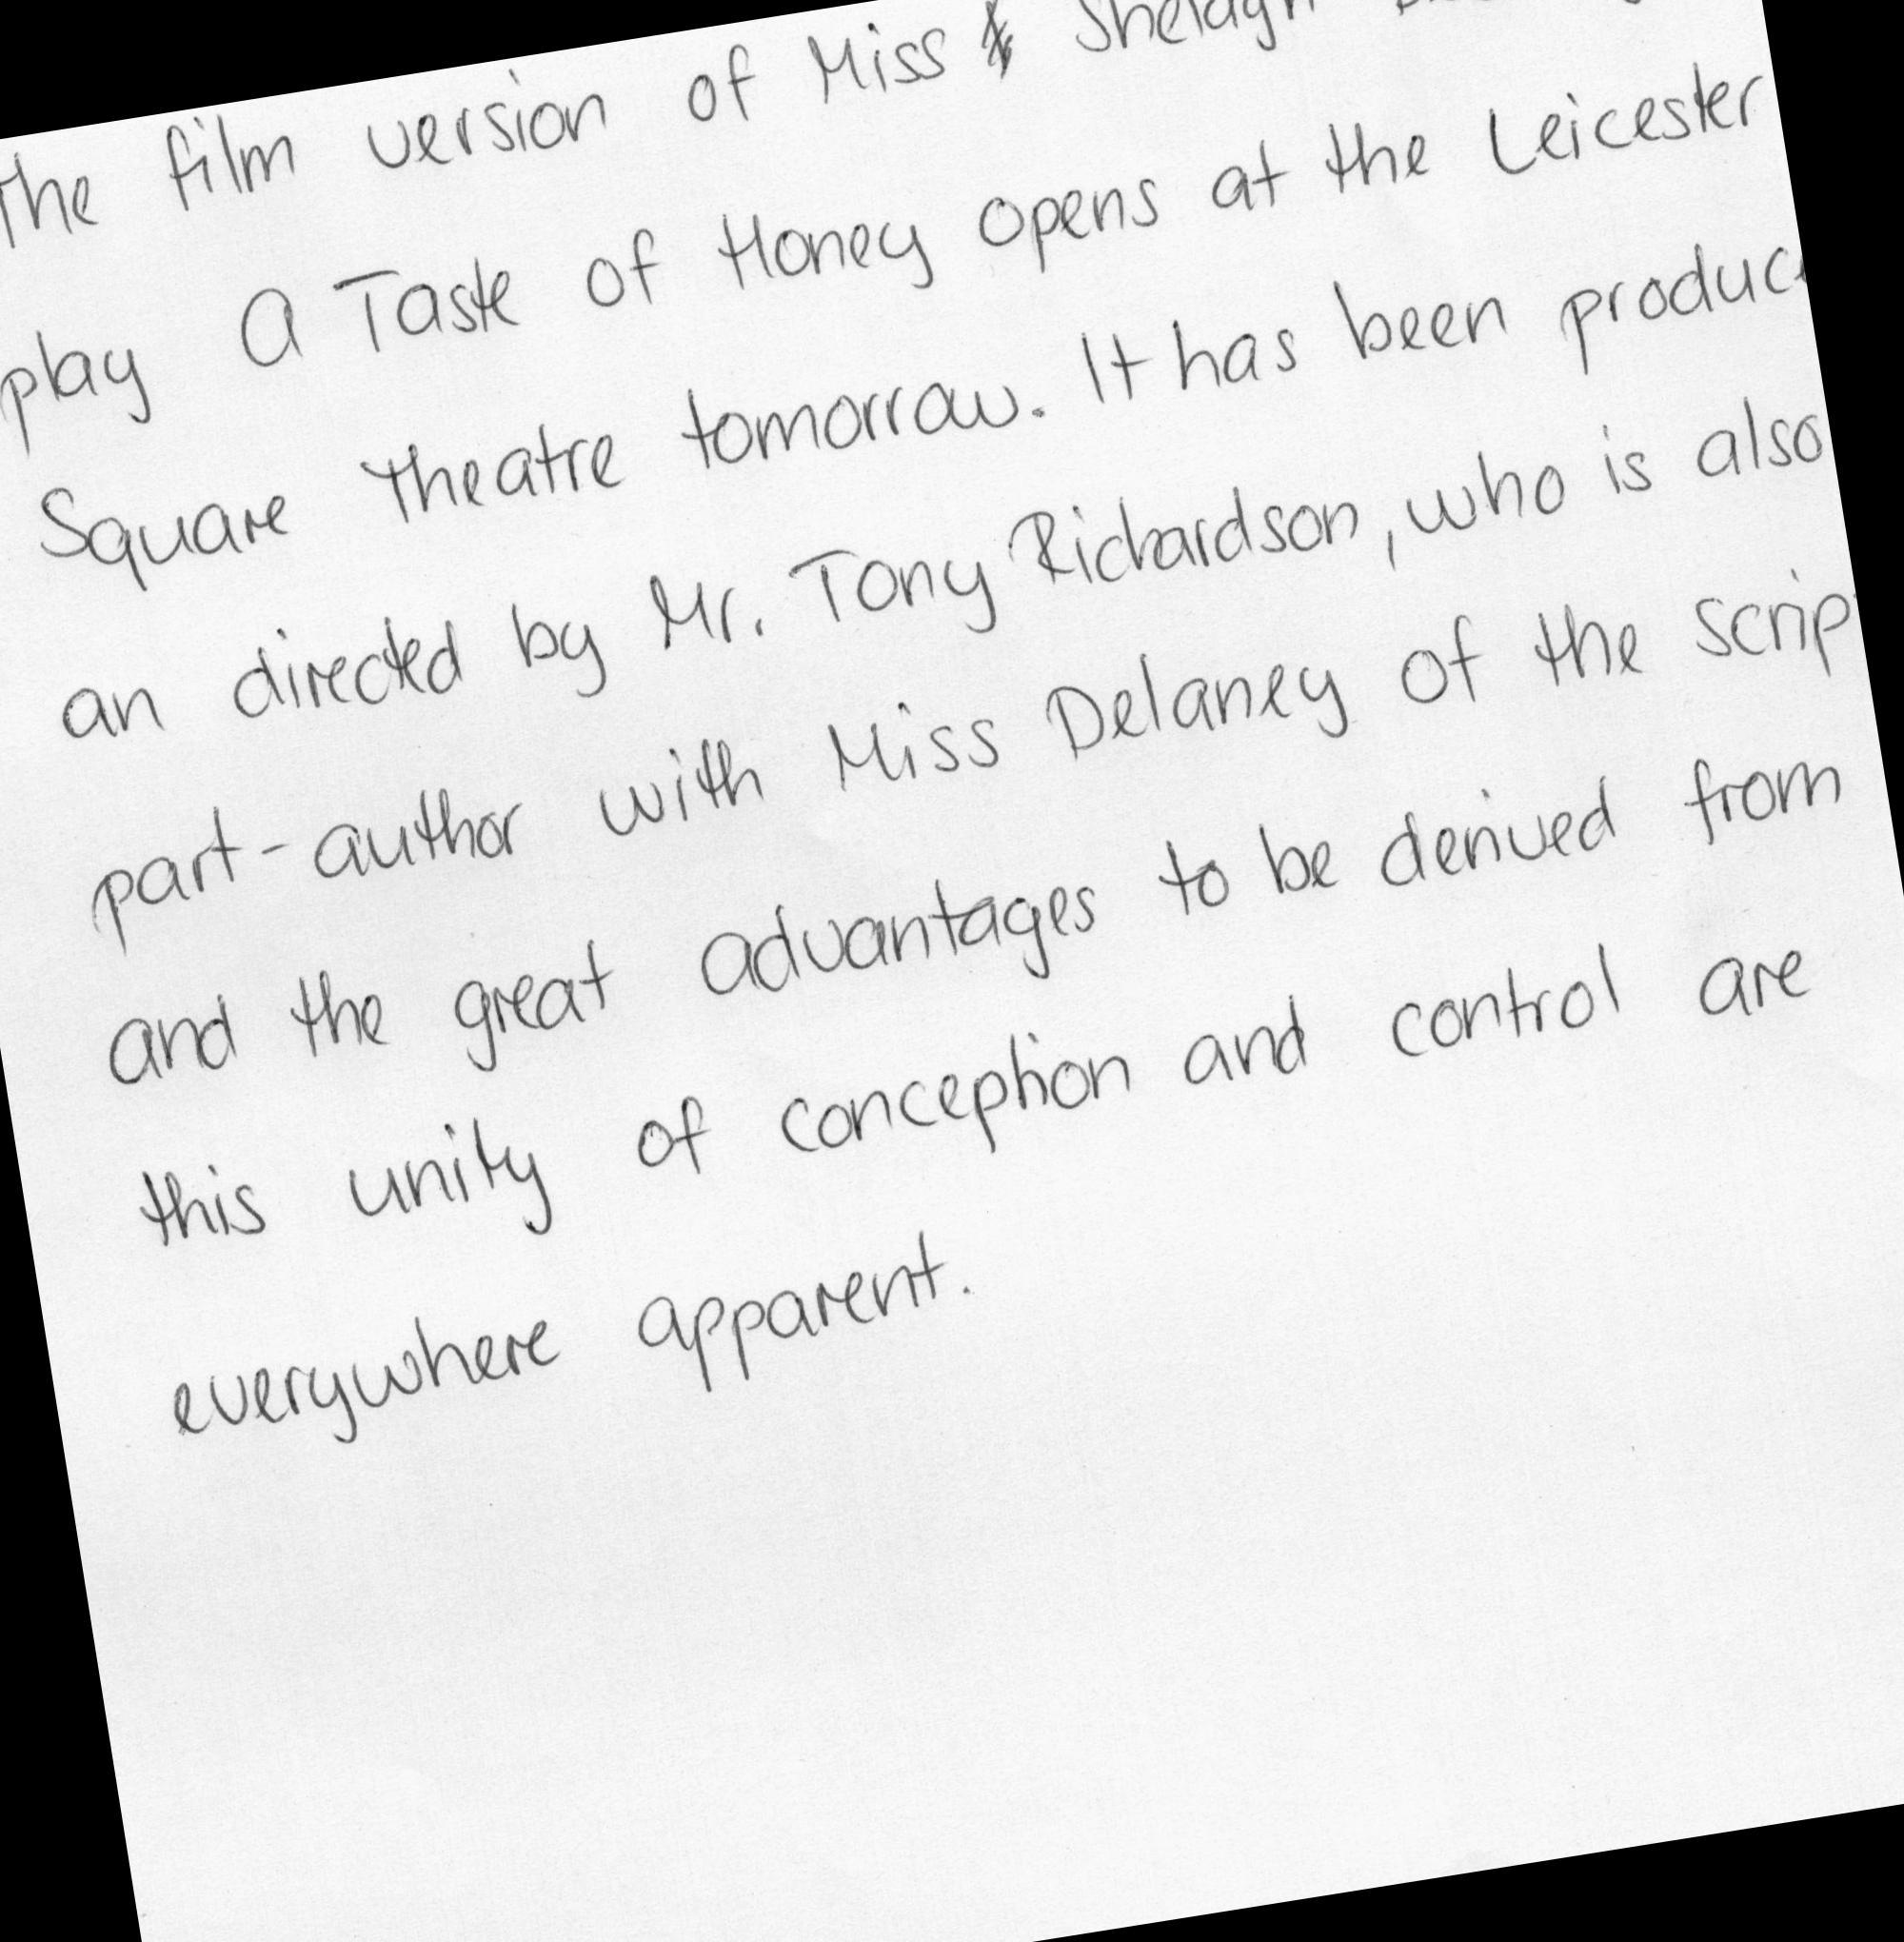 The film version of Miss Shelagh
play A Taste of Honey opens at the Leicester
Square Theatre tomorrow. It has been produc
an directed by Mr. Tony Richardson, who is also
part-author with Miss Delaney of the scrip
and the great advantages to be derived from
this unity of conception and control are
everywhere apparent.